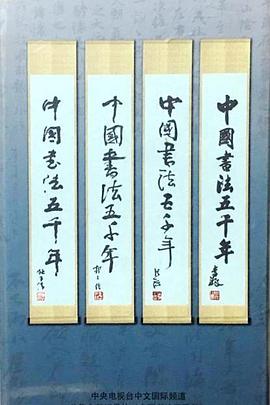 中國書法五千年
中国書法五千年
中國書法五千年
中国書法五千年
中央电视台中文国际频道